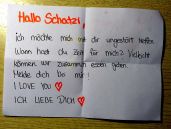 Hallo Schatzi,
ich möchte mich mit dir ungestört treffen.
Wann hast du Zeit für mich? Vielleicht
können wir zusammen essen gehen.
Melde dich bei mir!
I LOVE YOU ♡
ICH LIEBE DICH ♡